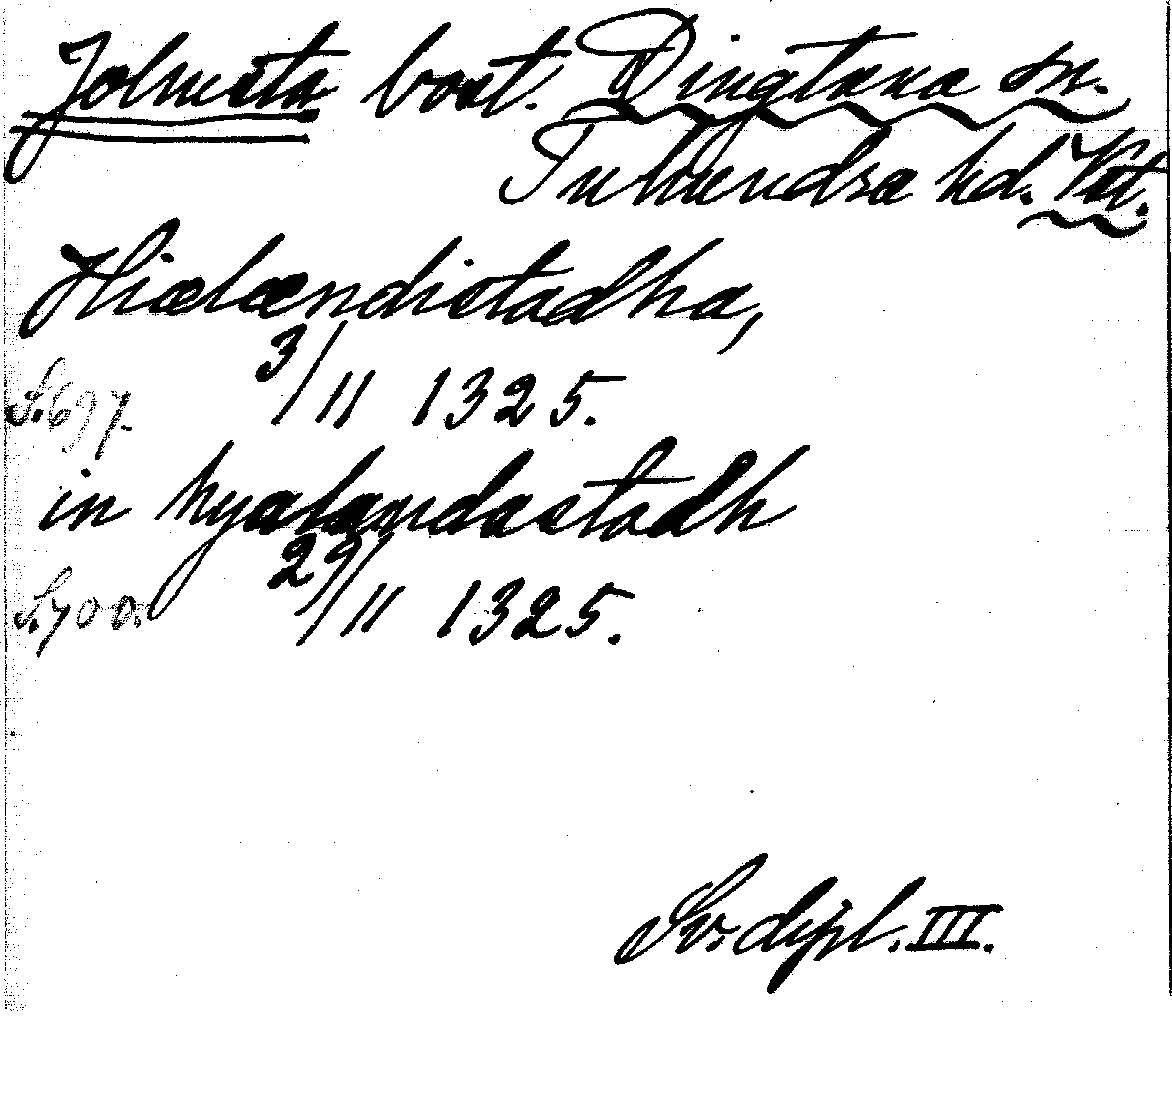 Jolmsta bost. Dingtuna sn.
Tuhundra hd. Vstm.
Hiælændistadha,
3/11 1325.
S. 697.
in hyælændastadh
29/11 1325.
S. 700.
Sv. dipl. III.